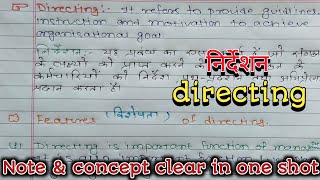 Directing:- It refers to provide guidlines
instruction and motivation to achieve
organisational goal.
निर्देशन:- यह प्रबंध का
के लक्ष्यों को प्राप्त करने
कर्मचारियों को निर्देश
प्रदान करता है।
निर्देशन
directing
Features (विशेषता) of directing.
(1) Directing is important function of
Note & concept clear in one shot